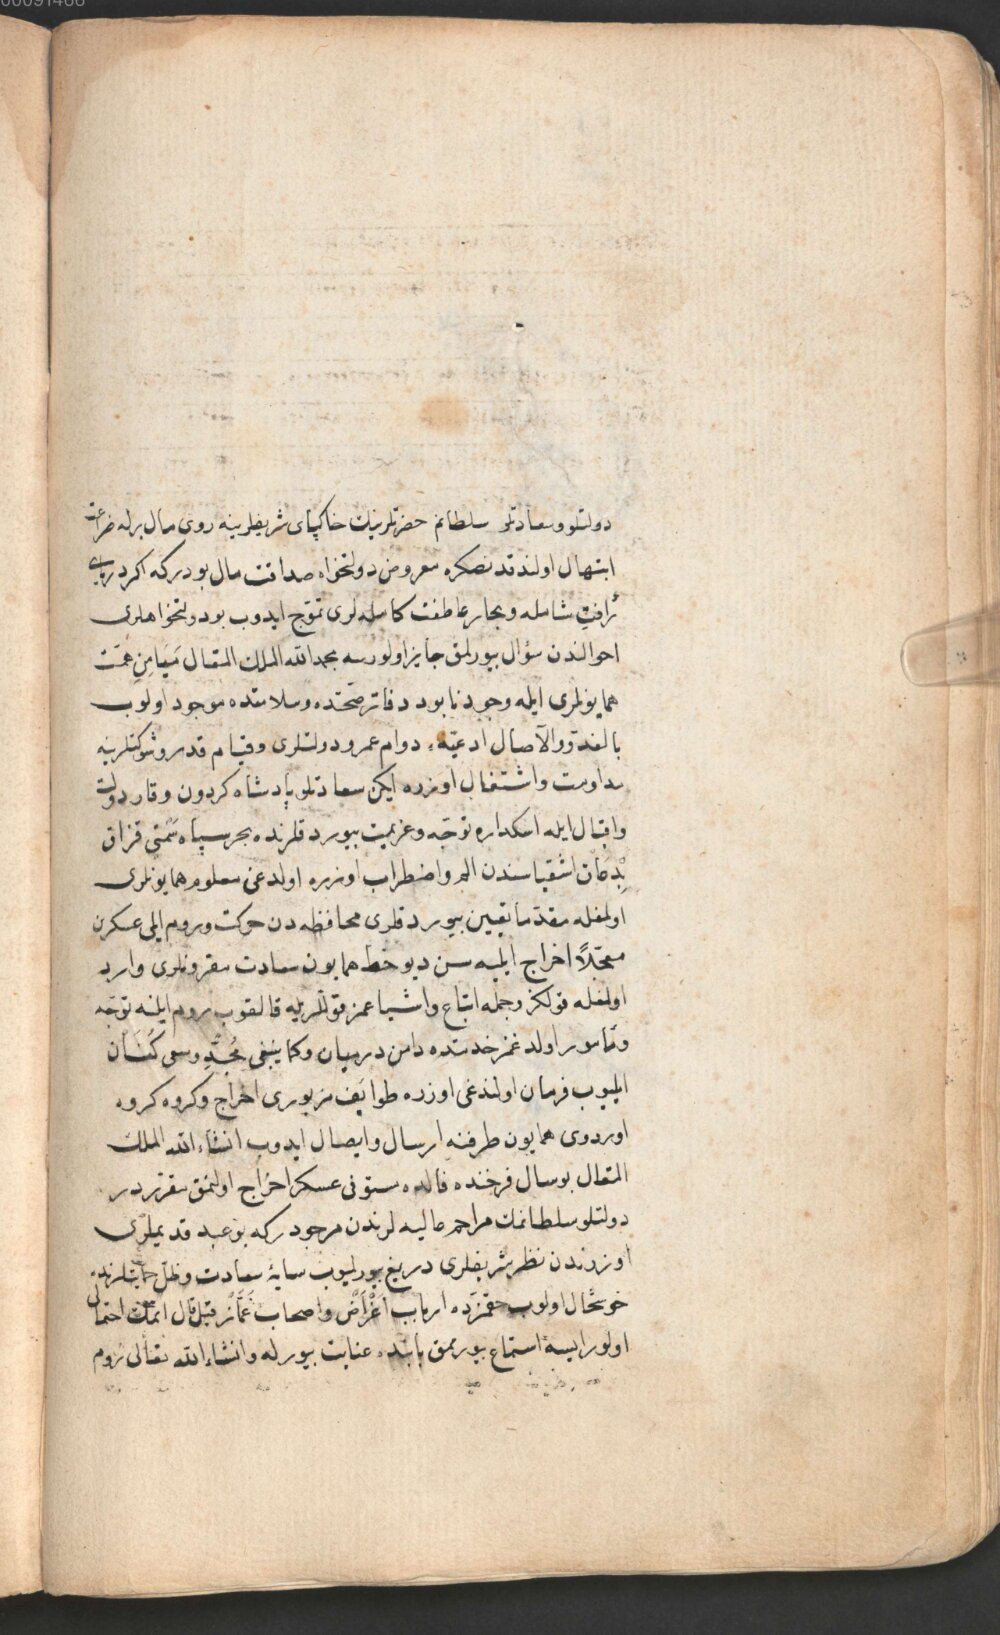 00091466
دولتلو وسعادتلو سلطانم حضرتلرینك خاكپای شریفلرینه روی مال برله ضراعت
ابتهال اولندقدنصكره معروض دولتخواه صداقت مال بودركه اكر دریای
رأفت شامله وبحار عاطفت كامله لری تموّج ایدوب بو دولتخواهلری
احوالندن سؤال بیورلمق جایز اولورسه بحمد الله الملك المتعال میامِنِ همّت
همایونلری ایله وجود نابود دفاتر صحّتده وسلامتده موجود اولوب
بالغدوّ والآصال ادعیّهٔ دوام عمر ودولتلری وقیام قدر وشوكتلرینه
مداومت واشتغال اوزره ایكن سعادتلو پادشاه كردون وقار دولت
واقبال ایله اسكداره توجّه وعزیمت بیوردقلرنده بحر سیاه سَمتی قزاق
بدعاق اشقیاسندن الم واضطراب اوزره اولدغی معلوم همایونلری
اولمغله مقدّما تعیین بیوردقلری محافظه دن حركت وروم ایلی عسكرن
معجّلاً اخراج ایلیه سن دیو خط همایون سعادت مقرونلری وارد
اولمغله قولكز وجمله اتباع واشیاعمز قوللریله قالقوب روم ایلنه توجّه
ومأمور اولدغمز خدمتده دامن درمیان وكما ینبغی مُجِدّ وسعی كُنَان
ایلیوب فرمان اولندغی اوزره طوایف مزبوری اخراج وكروه كروه
اوردوی همایون طرفنه ارسال وایصال ایدوب انشاء الله الملك
المتعال بو سال فرخنده فالده مستوفی عسكر اخراج اولنمق مقرّردر
دولتلو سلطانمك مراحم عالیه لرندن مرجودركه بو عبد قدیملری
اوزرندن نظر شریفلری دریغ بیورلمیوب سایهٔ سعادت وظلّ حمایتلرنده
خوشحال اولوب حقمزده ارباب اَغْرَاض واصحاب غمّاز قیل قال ایتمك احتمالی
اولور ایسه استماع بیورلمق بابنده عنایت بیوریله وانشاء الله تعالی روم